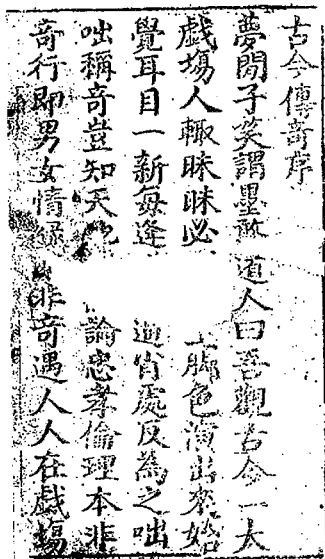 古今傳奇序
夢閒子笑謂墨憨道人曰吾觀古今一大
戲塲人輙昧昧必 上脚色演出來始
覺耳目一新每逢 逍肖處反為之咄
咄稱奇豈知天 論忠孝倫理本非
奇行即男女情緣 非奇遇人人在戲塲